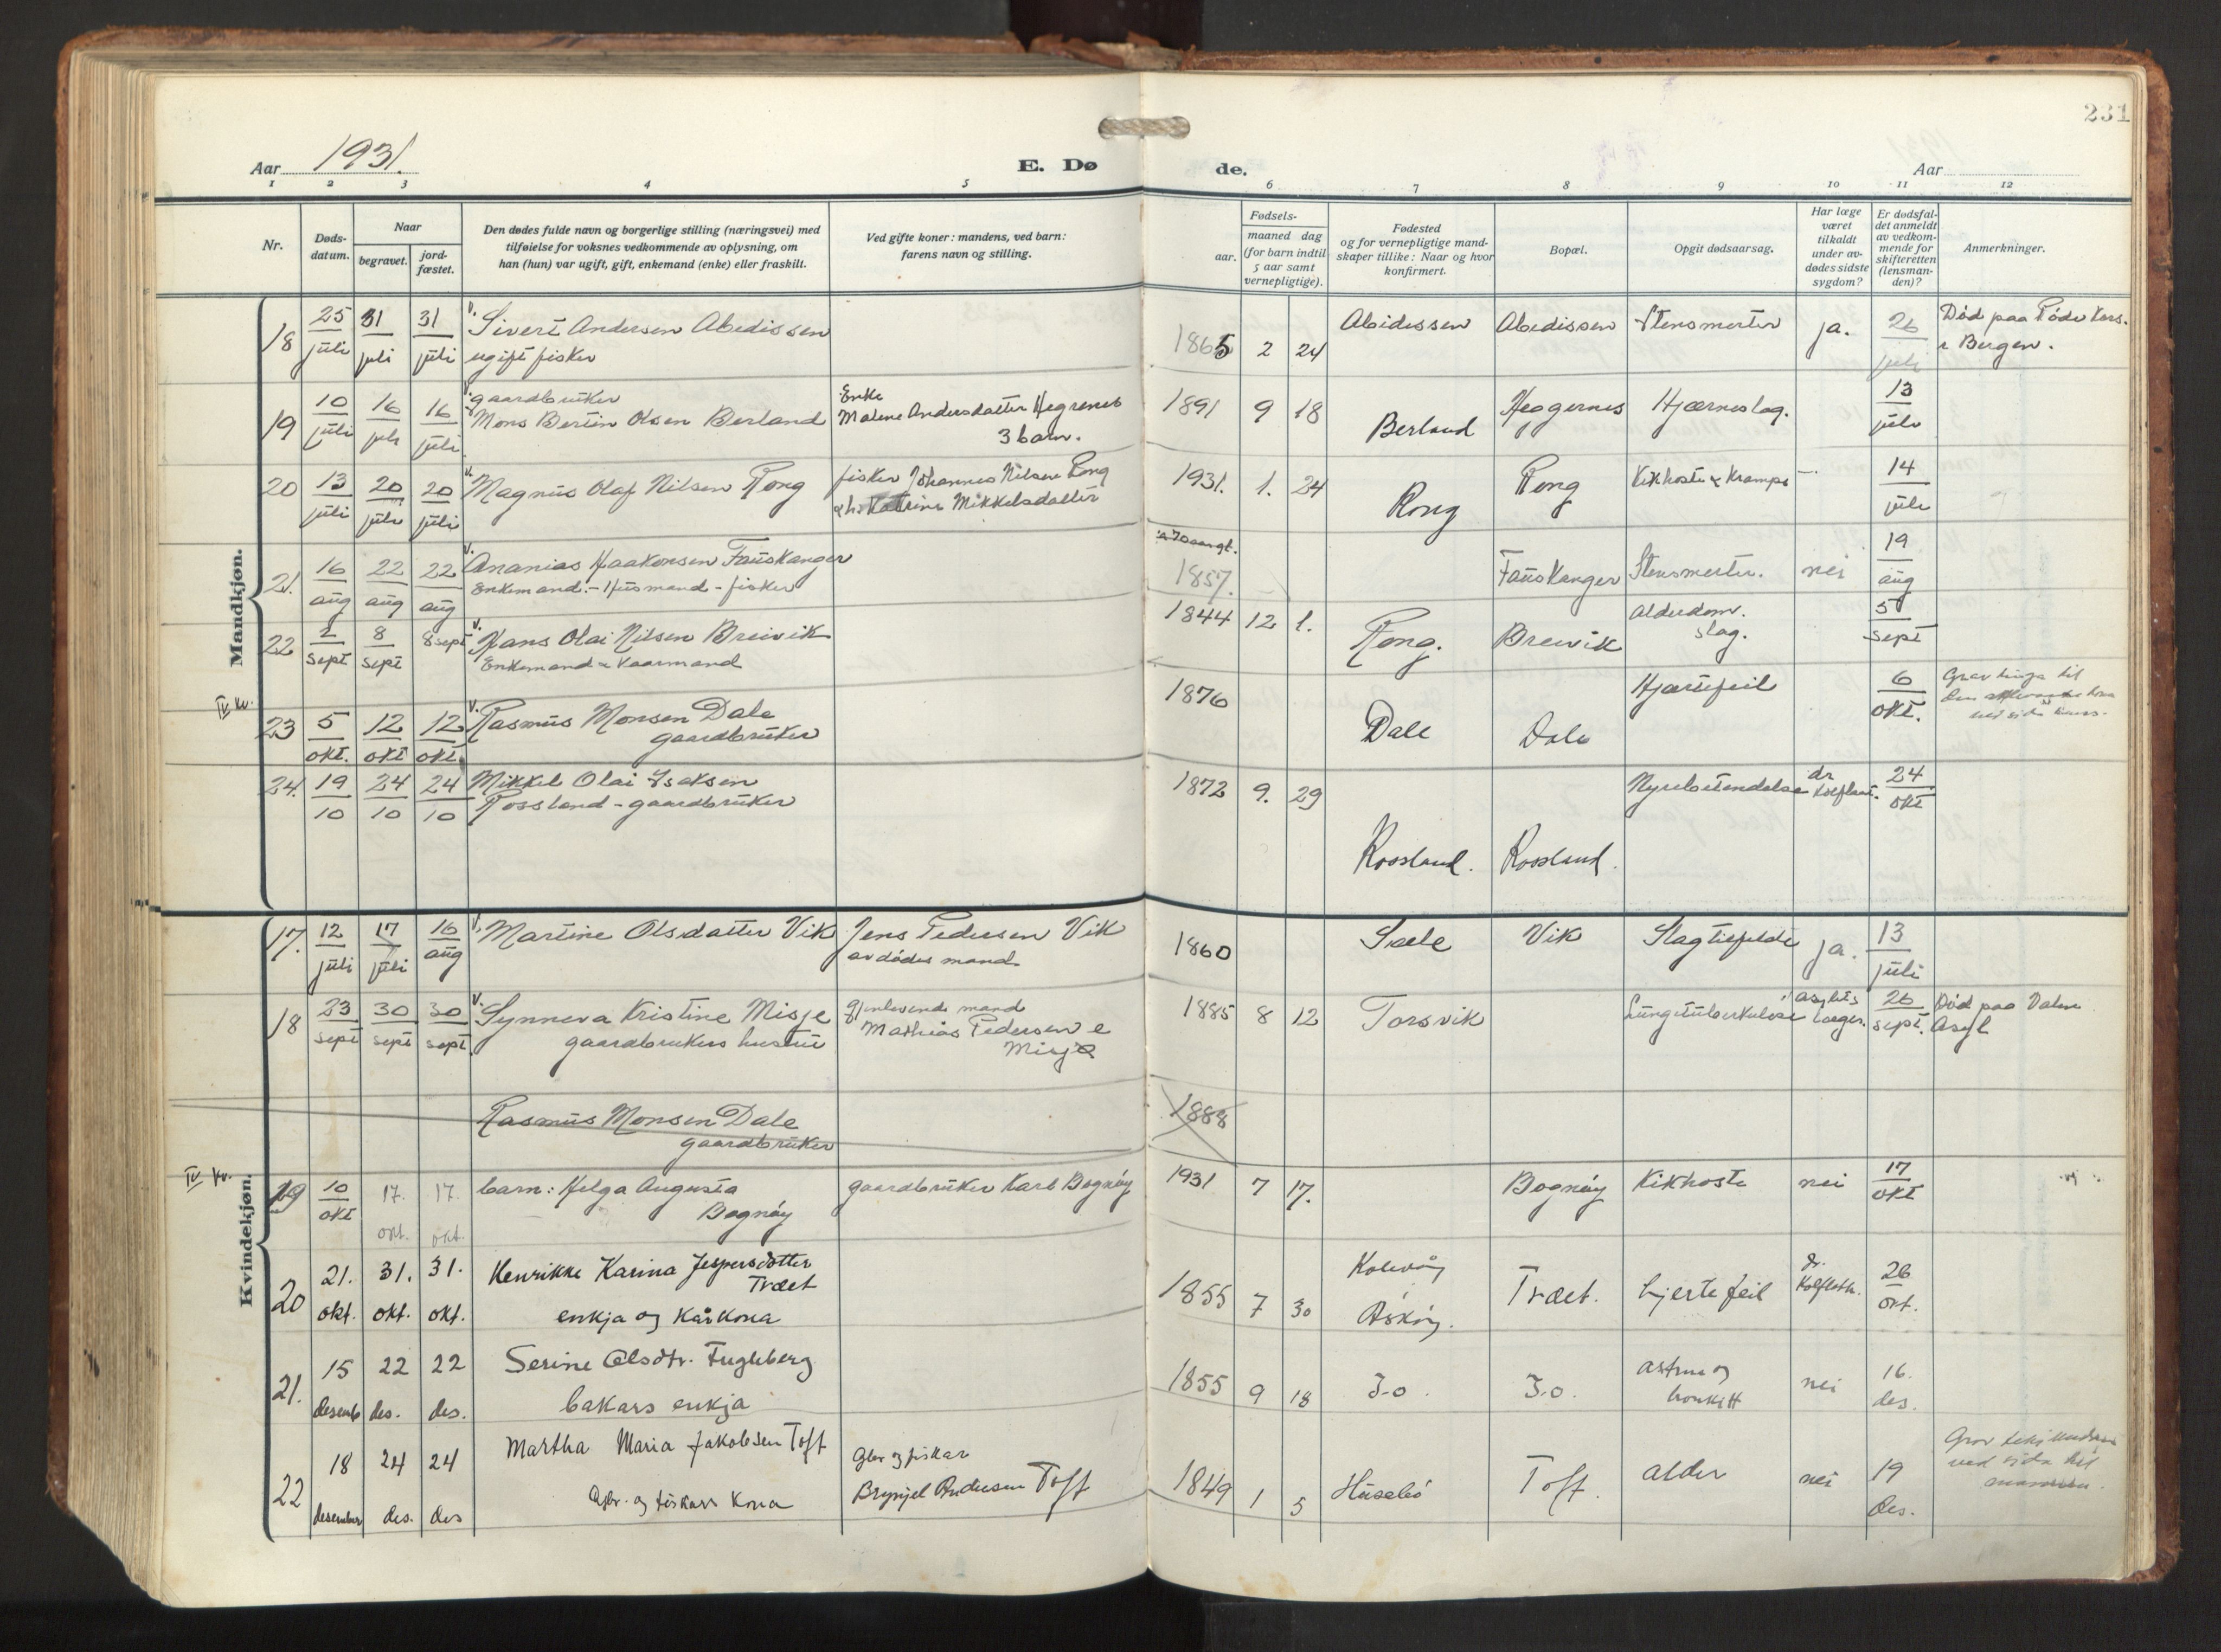 231
Aar 1931.
E. Dø
de.
Aar
1 2 3 4 5 6 7 8 9 10 11 12
Nr.
Døds-
datum.
Naar
begravet.
jord-
fæstet.
Den dødes fulde navn og borgerlige stilling (næringsvei) med
tilføielse for voksnes vedkommende av oplysning, om
han (hun) var ugift, gift, enkemand (enke) eller fraskilt.
Ved gifte koner: mandens, ved barn:
farens navn og stilling.
Fødsels-
aar.
maaned dag
(for barn indtil
5 aar samt
vernepligtige).
Fødested
og for vernepligtige mand-
skaper tillike: Naar og hvor
konfirmert.
Bopæl.
Opgit dødsaarsag.
Har læge
været
tilkaldt
under av-
dødes sidste
sygdom?
Er dødsfal-
det anmeldt
av vedkom-
mende for
skifteretten
(lensman-
den)?
Anmerkninger.
Mandkjøn.
18 25 juli 31 juli 31 juli v. Sivert Andersen Abedissen
ugift fisker
1865 2 24 Abidessen Abedissen Stensmerter ja. 26 juli
Død paa Røde Kors.
i Bergen.
19 10 juli 16 juli 16 juli v. gaardbruker
Mons Bertin Olsen Berland
Enke
Malene Andersdatter Hegrenes
3 barn.
1891 9 18 Berland Heggernes Hjerneslag. 13 juli
20 13 juli 20 juli 20 juli v. Magnus Olaf Nilsen Rong
fisker Johannes Nilsen Rong
& h. Katrine Mikkelsdatter
1931. 1. 24 Rong Rong Kikhoste & Krampe —. 14 juli
21. 16 aug 22 aug 22 aug v. Ananias Haakonsen Fauskanger
Enkemand. - Husmand - fisker
1857. Fauskanger Stensmerter. nei 19 aug
22 2 sept 8 sept 8 sept v. Hans Olai Nilsen Breivik
Enkemand & Kaarmand
1844 12 1. Rong. Breivik Alderdom.
slag.
5 sept
IV kv.
23 5 okt. 12 okt 12 okt. v. Rasmus Monsen Dale
gaardbruker
1876 Dale Dale Hjertefeil 6 okt.
24. 19 10 24 10 24 10 Mikkel Olai Isaksen
Rossland - gaardbruker
1872 9. 29 Rossland. Rossland. Nyrebetendelse dr
24 okt
Kvindekjøn.
17. 12 juli 17 juli 16 aug v. Martine Olsdatter Vik
Jens Pedersen Vik
avdødes mand.
1860 Sæle Vik Slagtilfelde ja. 13 juli
18 23 sept 30 sept 30 sept. v. Synneva Kristine Misje
gaardbrukers hustru
Gjenlevende mand
Mathias Pedersen e
Misje
1885 8 12 Torsvik Lungetuberkulose asylets
læger.
26 sept.
Død paa Dalen
Asyl
Rasmus Monsen Dale
gaardbruker
1888
IV kv.
19 10 okt 17. okt. 17. okt. barn: Helga Augusta
Bognøy
gaardbruker Karl Bognøy
1931 7 17. Bognøy Kikhoste nei 17 okt
20 21. okt. 31. okt. 31. okt. Henrikke Karina Jespersdotter
Træet
enkja og kårkona
1855 7 30 Kolevåg
Askøy.
Træet. hjertefeil dr.
Kolfloth.
26 okt.
21. 15 desemb 22 des. 22 des. Serine Olsdtr. Fugleberg
bakars enkja
1855 9 18 J.o. J.o. astma og
bronkitt
nei 16. des.
22 18 desember 24 des. 24 des Martha Maria Jakobsen Toft
Gbr. og fiskars kona
Gbr og fiskar
Brynjel Andersen Toft
1849 1 5 Husebö Toft. alder nei 19 des.
ved sida til